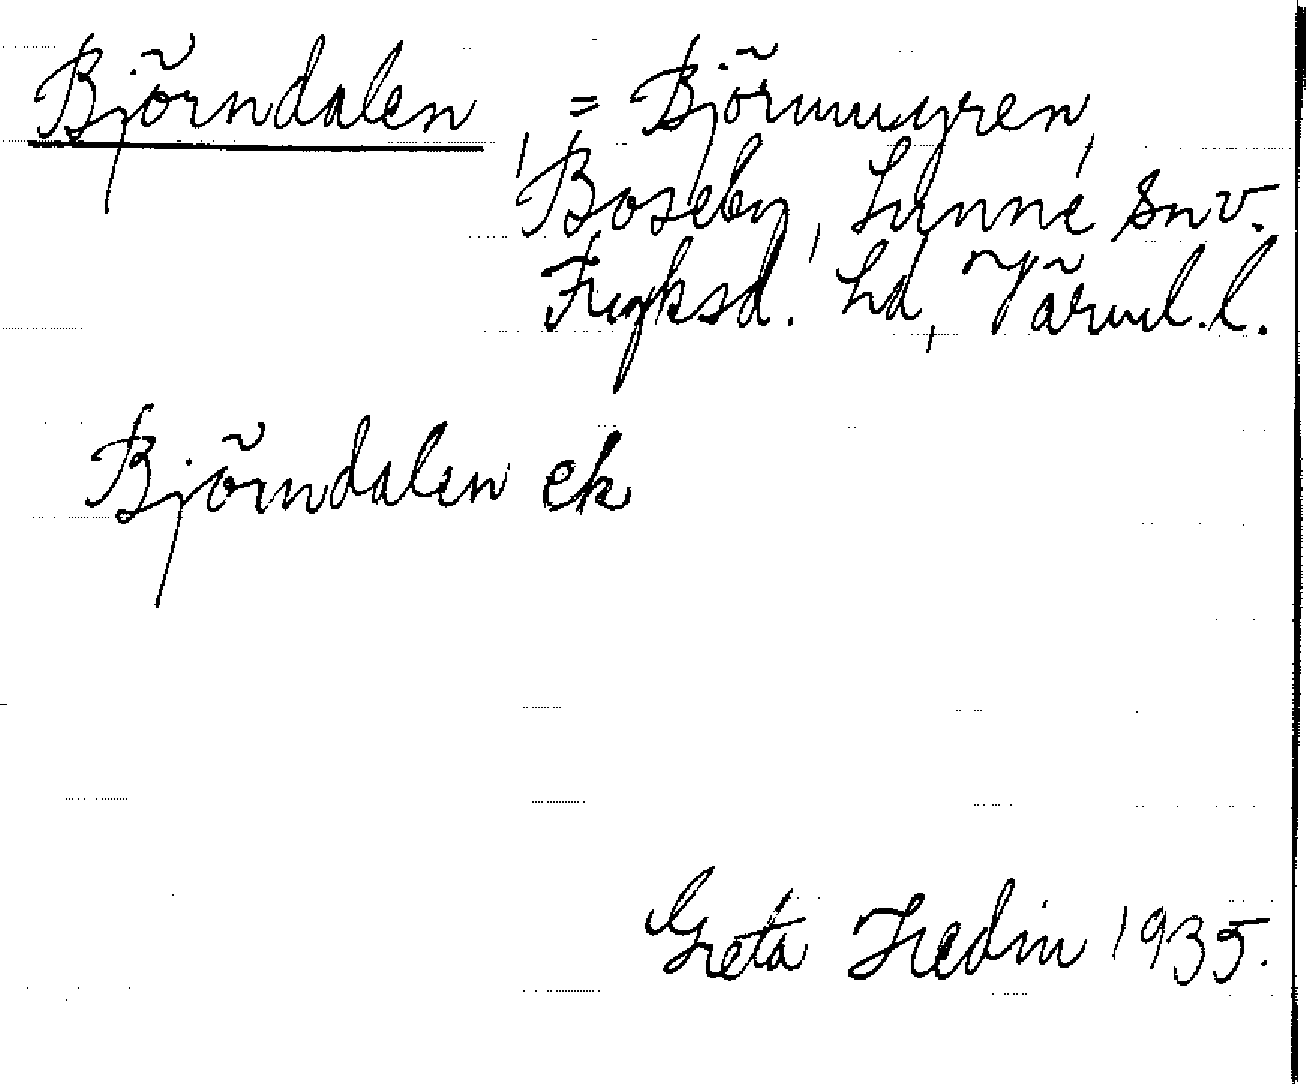 Björndalen = Björnmyren,
Boseby, Sunne snv.
Fryksd. hd, Värml.l.
Björndalen ek
Greta Hedin 1935.